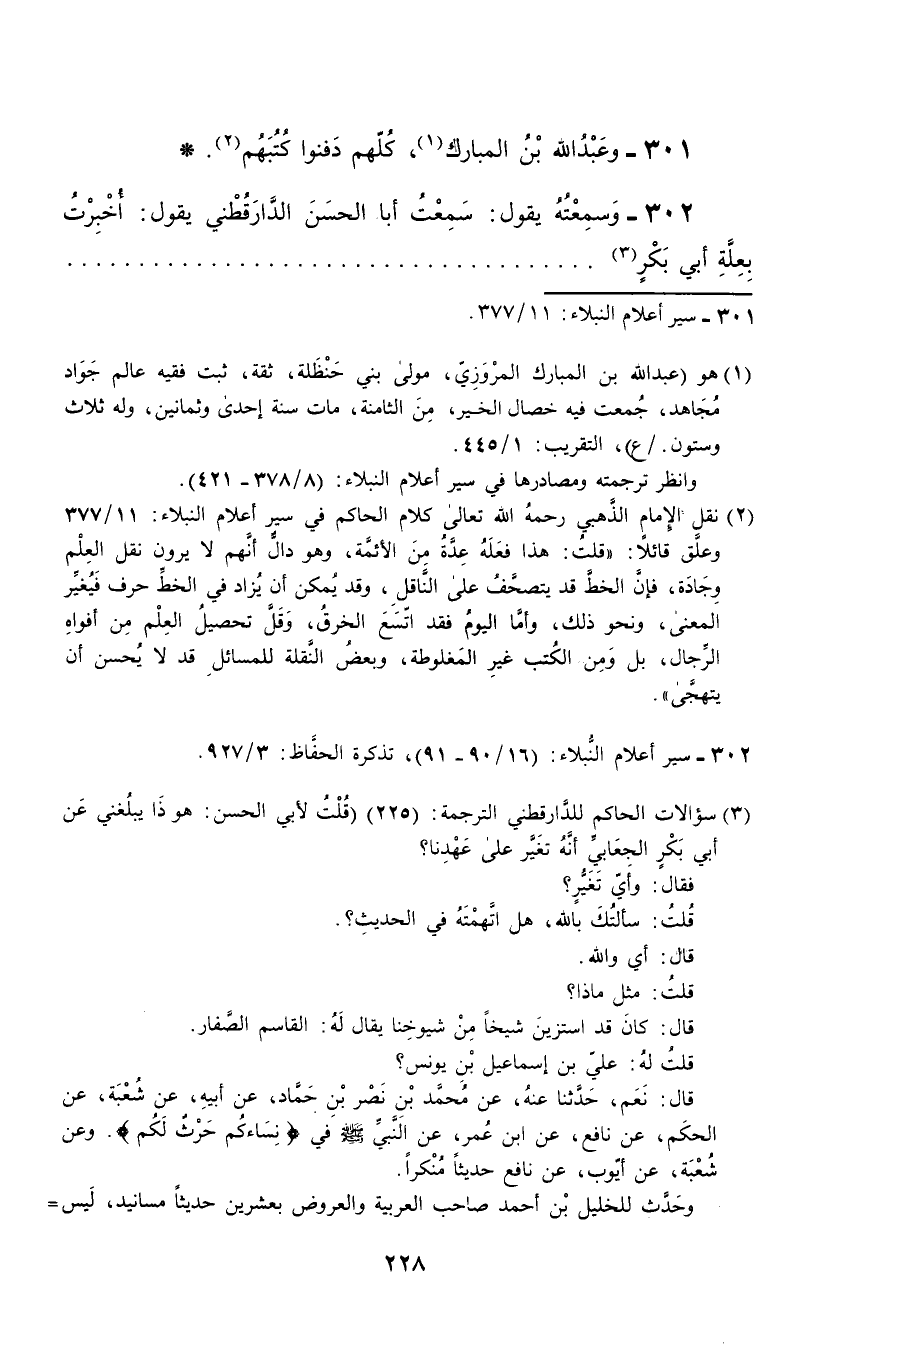 ٣٠١ ـ وعَبْدُالله بْنُ المبارك(١)، كُلّهم دَفنوا كُتُبَهُم(٢). *
٣٠٢ ـ وَسمِعْتُهُ يقول: سَمِعْتُ أبا الحسَنَ الدَّارَقُطْني يقول: أُخْبِرْتُ
بِعِلَّةِ أبي بَكْرٍ(٣) . . . . . . . . . . . . . . . . . . . . . . . . . . . . . . . . . . . . .
٣٠١ ـ سير أعلام النبلاء: ٣٧٧/١١.
(١) هو (عبدالله بن المبارك المرْوَزِيّ، مولىٰ بني حَنْظَلة، ثقة، ثبت فقيه عالم جَوَاد
مُجَاهد، جُمعت فيه خصال الخير، مِنَ الثامنة، مات سنة إحدىٰ وثمانين، وله ثلاث
وستون. /ع)، التقريب: ٤٤٥/١.
وانظر ترجمته ومصادرها في سير أعلام النبلاء: (٣٧٨/٨ ـ ٤٢١).
(٢) نقل الإمام الذَّهبي رحمهُ الله تعالىٰ كلام الحاكم في سير أعلام النبلاء: ٣٧٧/١١
وعلَّق قائلاً: «قلتُ: هذا فعَلَهُ عِدَّةُ مِنَ الأئمَّة، وهو دالٌّ أنَّهم لا يرون نقل العِلْم
وِجَادَة، فإنَّ الخطَّ قد يتصحَّفُ علىٰ النَّاقل، وقد يُمكن أن يُزاد في الخطِّ حرف فَيُغيِّر
المعنىٰ، ونحو ذلك، وأمَّا اليومُ فقد اتّسَعَ الخرقُ، وَقَلَّ تحصيلُ العِلْم مِن أفواهِ
الرِّجال، بل وَمِن الكُتب غيرِ المَغلوطة، وبعضُ النَّقلة للمسائلِ قد لا يُحسن أن
يتهجَّىٰ».
٣٠٢ ـ سير أعلام النُّبلاء: (٩٠/١٦ ـ ٩١)، تذكرة الحفَّاظ: ٩٢٧/٣.
(٣) سؤالات الحاكم للدَّارقطني الترجمة: (٢٢٥) (قُلْتُ لأبي الحسن: هو ذَا يبلُغني عَن
أبي بَكْرٍ الجِعَابيِّ أنَّهُ تغَيَّر علىٰ عَهْدِنا؟
فقال: وأيّ تَغَيُّرٍ؟
قُلتُ: سألتُكَ بالله، هل اتَّهمْتَهُ في الحديثِ؟.
قال: أي والله.
قلتُ: مثل ماذا؟
قال: كانَ قد استزينَ شيخاً مِنْ شيوخِنا يقال لَهُ: القاسم الصَّفار.
قلتُ لهُ: عليّ بن إسماعيل بْن يونس؟
قال: نَعَم، حَدَّثنا عنهُ، عن مُحمَّد بْن نَصْر بْنِ حَمَّاد، عن أبيهِ، عن شُعْبَة، عن
الحكَم، عن نافع، عن ابن عُمر، عن النَّبيِّ ﷺ في ﴿نِسَاءكُم حَرْثٌ لَكُم﴾. وعن
شُعْبَة، عن أيّوب، عن نافع حديثاً مُنْكراً.
وحَدَّث للخليل بْن أحمد صاحب العربية والعروض بعشرين حديثاً مسانيد، لَيس=
٢٢٨